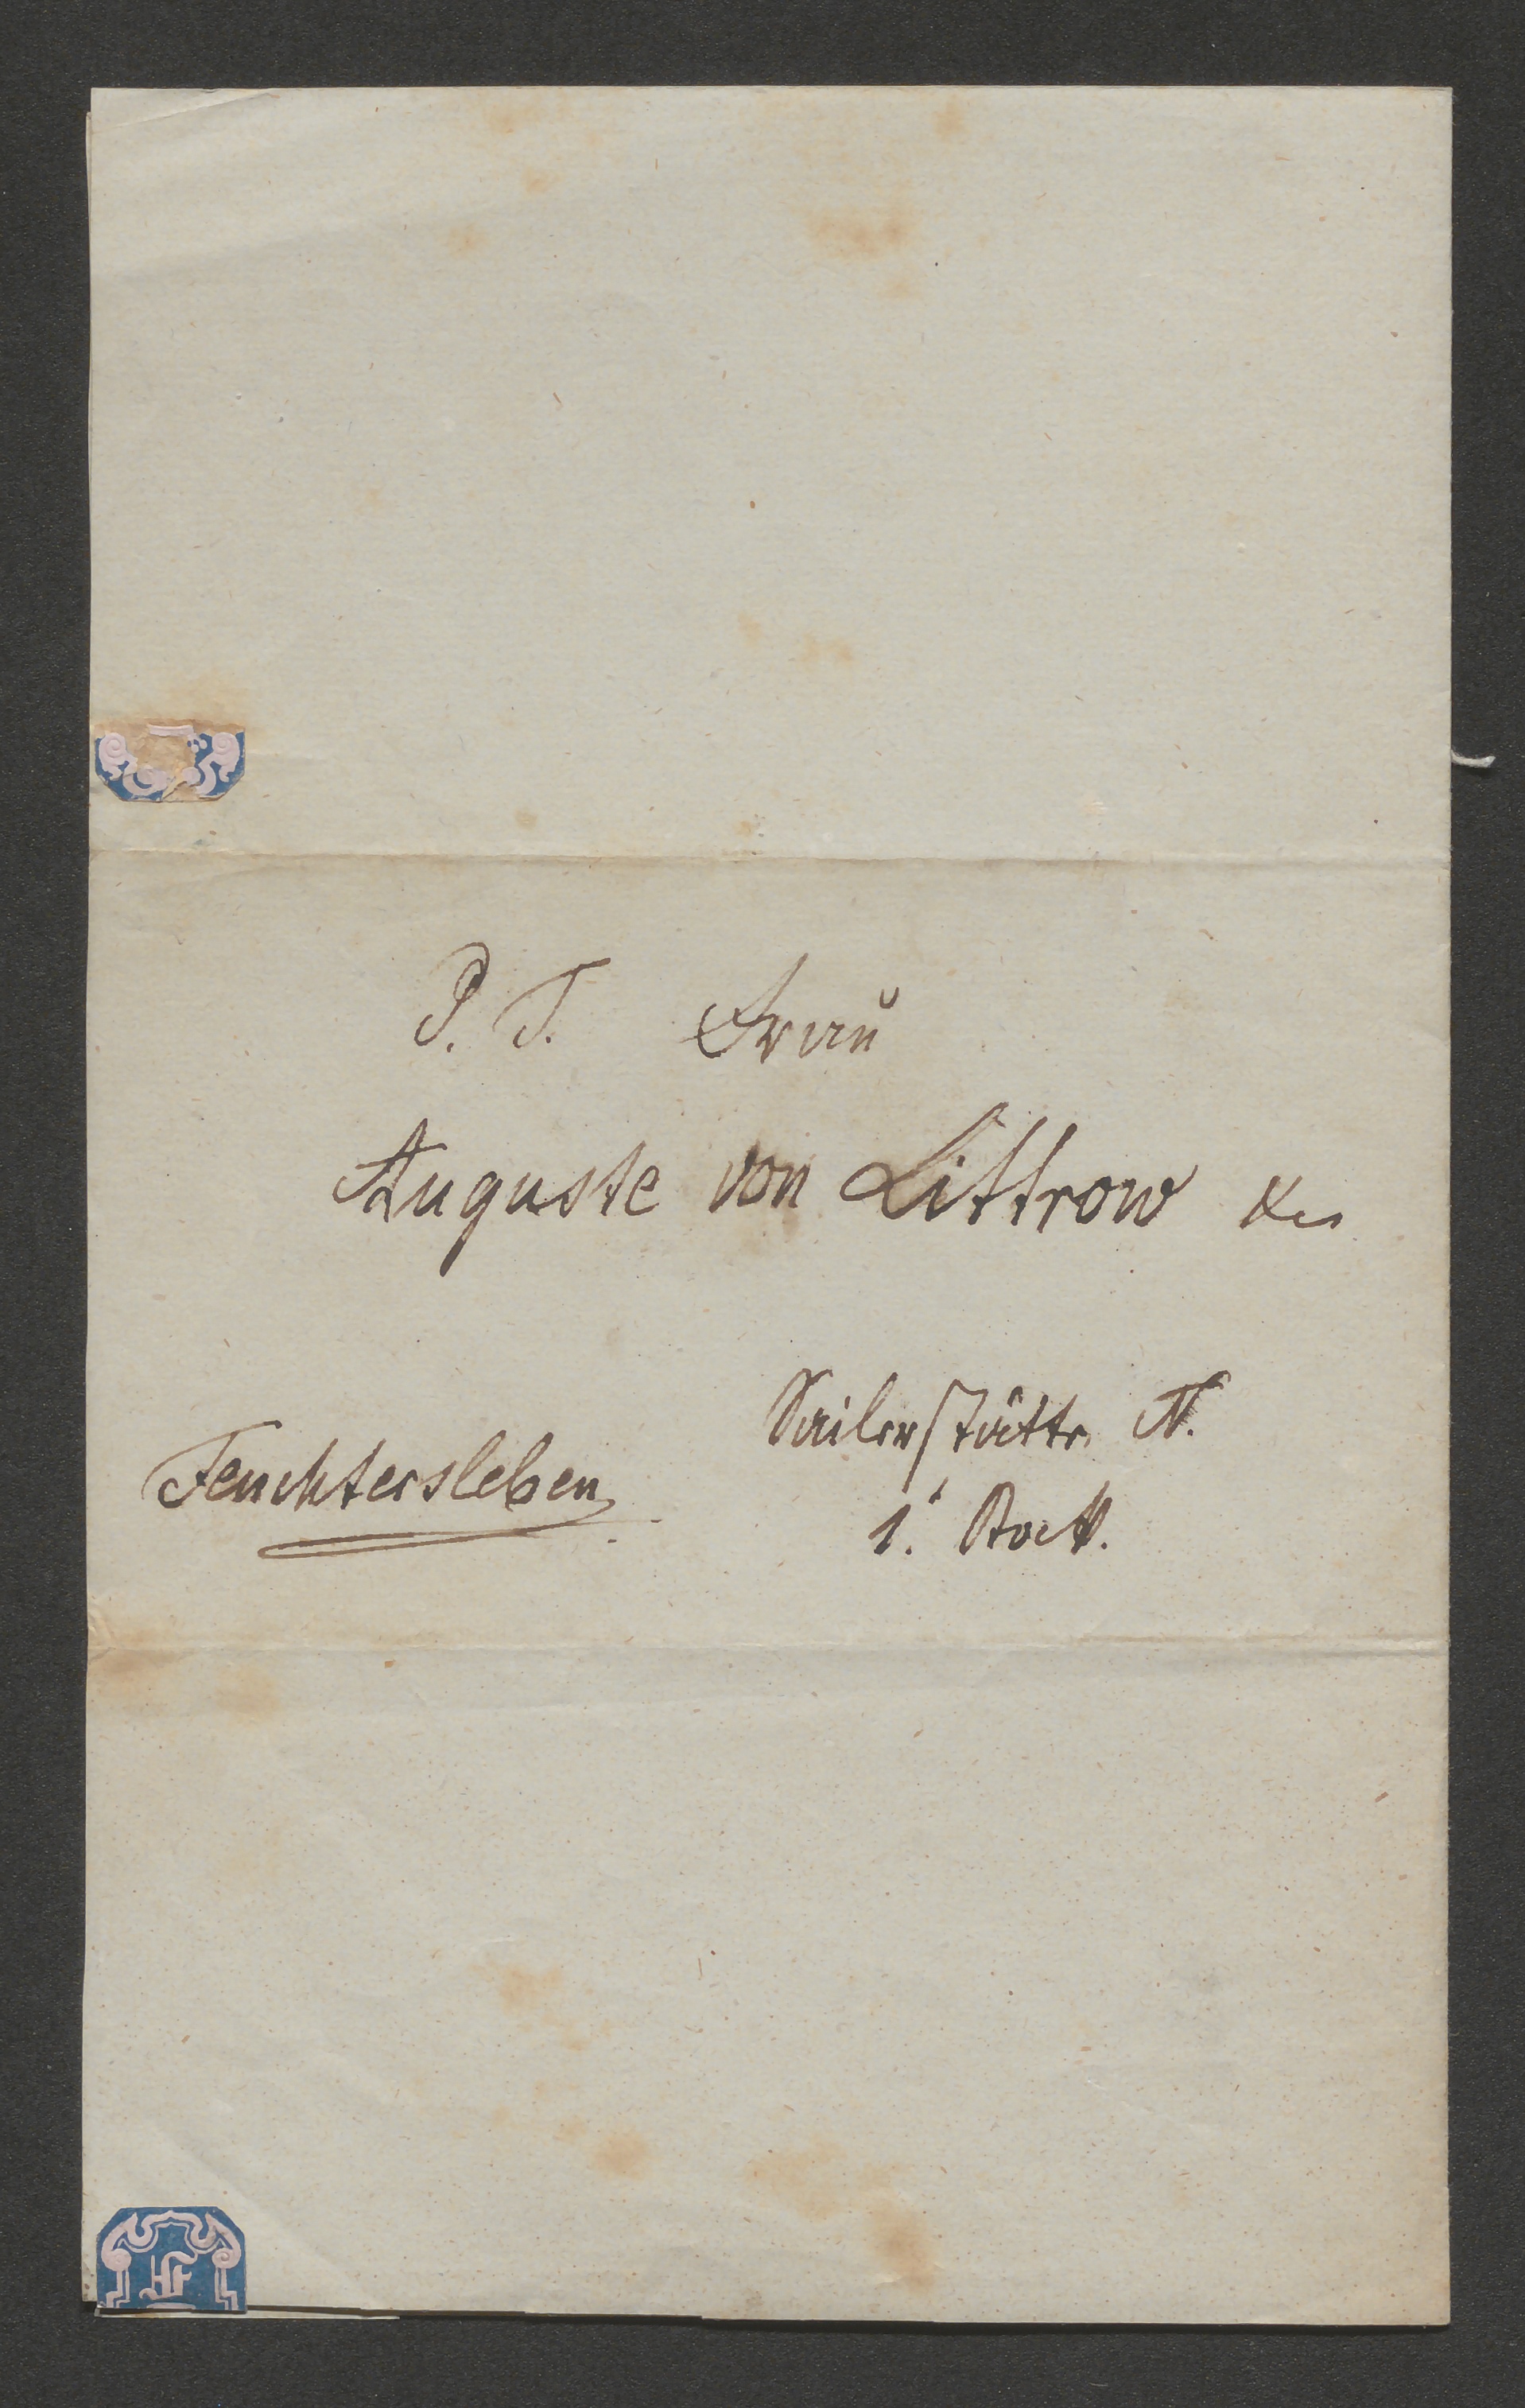 P. T. Frau
Auguste von Littrow &c
Sailerstätte N.
Feuchtersleben
1. Stock.
HF